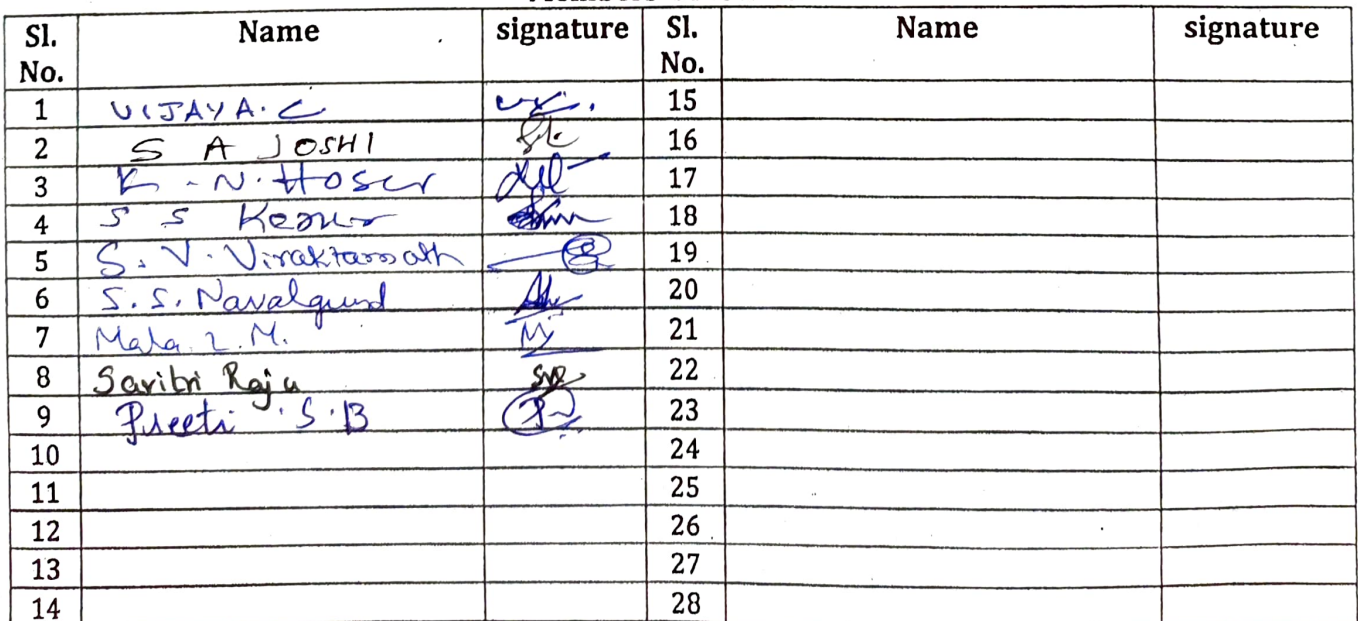 Sl. No. Name signature Sl. No. Name signature
1 VIJAYA. C 15
2 S A JOSHI 16
3 K. N. Hosur 17
4 S S Kerur 18
5 S. V. Viraktamath 19
6 S. S. Navalgund 20
7 Mala. L. M. 21
8 Savitri Raju 22
9 Preeti . S. B 23
10 24
11 25
12 26
13 27
14 28